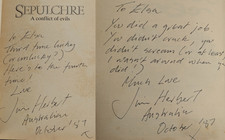 SEPULCHRE
A conflict of evils
To Elsa
Third time lucky
(or unlucky?)
Here's to the fourth
time!
Love
Jim Herbert
Australia
October 1987
To Elsa
You did a great job.
You didn't crack & you
didn't scream (or at least
I wasn't around when you
did).
Much Love
Jim Herbert
Australia
October 1987